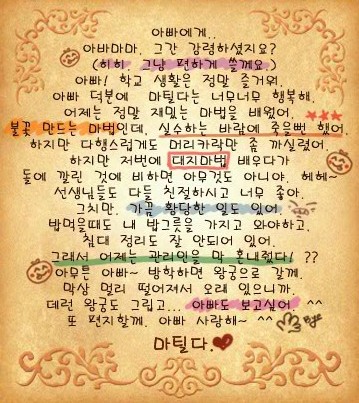 아빠에게..
아바마마. 그간 강령하셨지요?
(히히 그냥 편하게 쓸께요.)
아빠! 학교 생활은 정말 즐거워.
아빠 덕분에 마틸다는 너무너무 행복해.
어제는 정말 재밌는 마법을 배웠어.
불꽃 만드는 마법인데. 실수하는 바람에 죽을뻔 했어.
하지만 다행스럽게도 머리카락만 좀 까실렸어.
하지만 저번에 대지마법 배우다가
돌에 깔린 것에 비하면 아무것도 아니야. 헤헤~
선생님들도 다들 친절하시고 너무 좋아.
그치만. 가끔 황당한 일도 있어.
밥먹을때도 내 밥그릇을 가지고 와야하고.
침대 정리도 잘 안되어 있어.
그래서 어제는 관리인을 막 혼내줬다! ??
아무튼 아빠~ 방학하면 왕궁으로 갈께.
막상 멀리 떨어져서 오래 있으니까.
데런 왕궁도 그립고... 아빠도 보고싶어 ^^
또 편지할께. 아빠 사랑해~ ^^
마틸다.